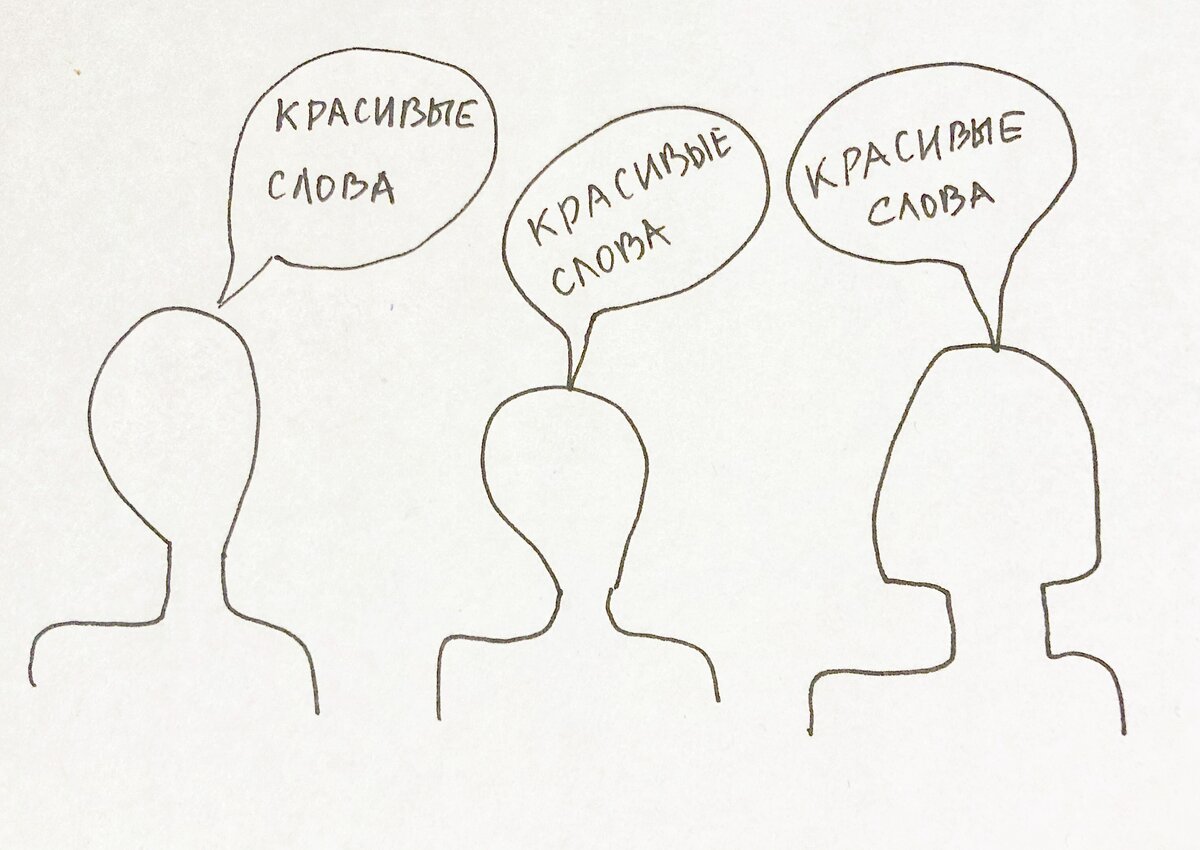 КРАСИВЫЕ
СЛОВА
КРАСИВЫЕ
СЛОВА
КРАСИВЫЕ
СЛОВА